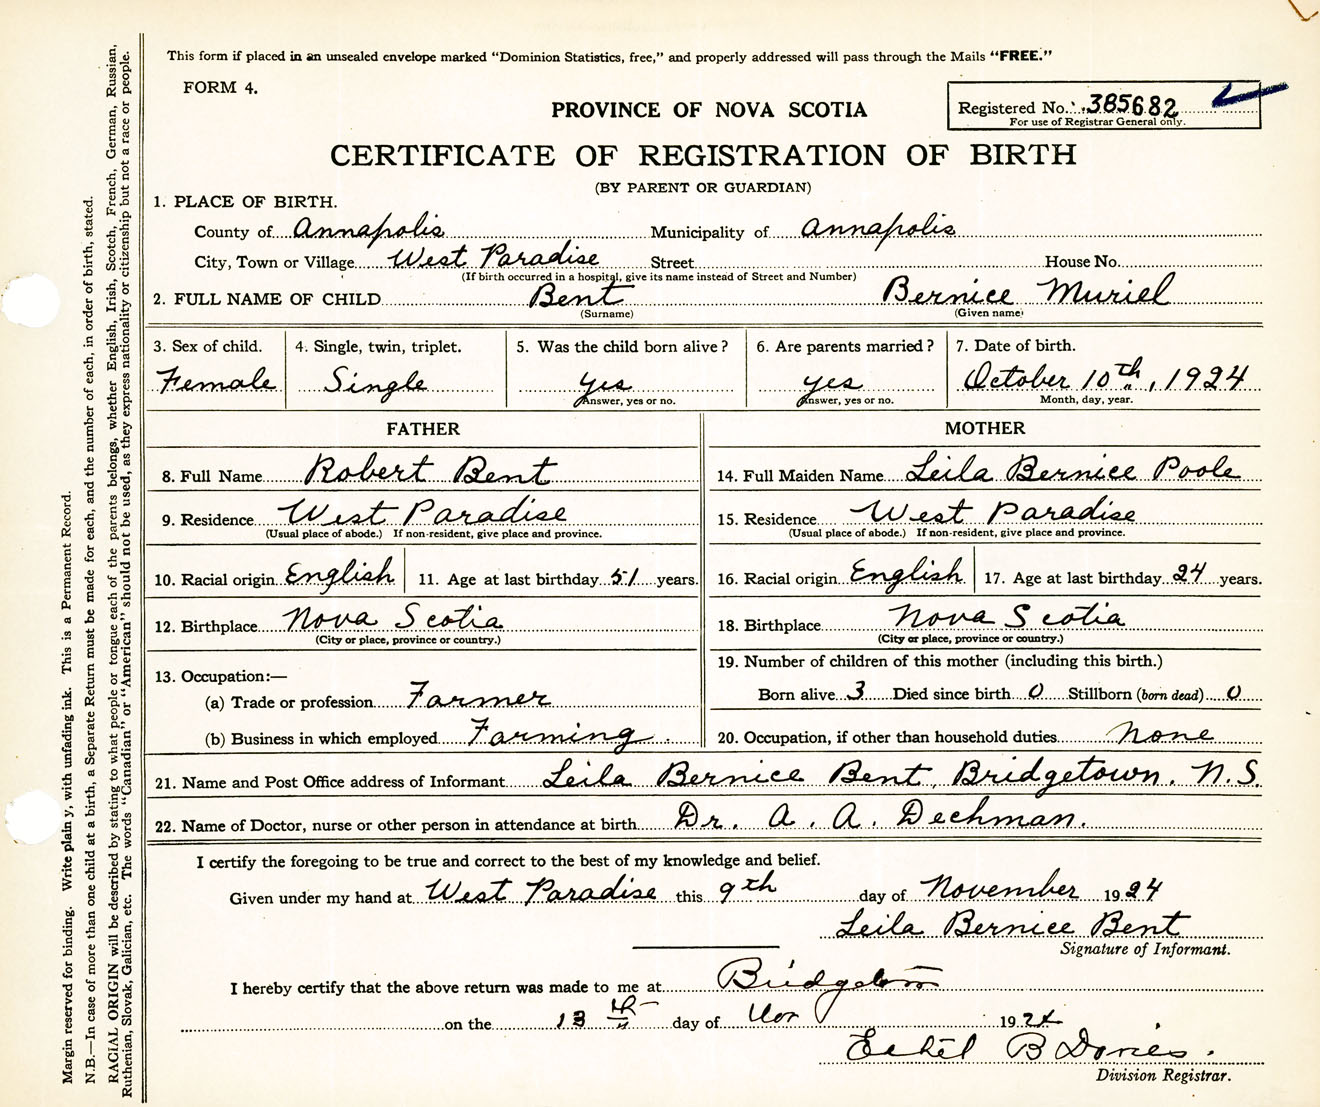 This form if placed in an unsealed envelope marked "Dominion Statistics, free," and properly addressed will pass through the Mails "FREE."
FORM 4.
PROVINCE OF NOVA SCOTIA
Registered No. 385682
For use of Registrar General only.
CERTIFICATE OF REGISTRATION OF BIRTH
(BY PARENT OR GUARDIAN)
1. PLACE OF BIRTH.
County of Annapolis Municipality of Annapolis
City, Town or Village West Paradise Street House No.
(If birth occurred in a hospital, give its name instead of Street and Number)
2. FULL NAME OF CHILD Bent Bernice Muriel
(Surname) (Given name)
3. Sex of child. 4. Single, twin, triplet. 5. Was the child born alive? 6. Are parents married? 7. Date of birth.
Female Single yes yes October 10th, 1924
Answer, yes or no. Answer, yes or no. Month, day, year.
FATHER MOTHER
8. Full Name Robert Bent 14. Full Maiden Name Leila Bernice Poole
9. Residence West Paradise 15. Residence West Paradise
(Usual place of abode.) If non-resident, give place and province. (Usual place of abode.) If non-resident, give place and province.
10. Racial origin English 11. Age at last birthday 51 years. 16. Racial origin English 17. Age at last birthday 24 years.
12. Birthplace Nova Scotia 18. Birthplace Nova Scotia
(City or place, province or country.) (City or place, province or country.)
13. Occupation:— 19. Number of children of this mother (including this birth.)
(a) Trade or profession Farmer Born alive 3 Died since birth 0 Stillborn (born dead) 0
(b) Business in which employed Farming. 20. Occupation, if other than household duties None
21. Name and Post Office address of Informant Leila Bernice Bent, Bridgetown. N.S.
22. Name of Doctor, nurse or other person in attendance at birth Dr. A. A. Dechman.
I certify the foregoing to be true and correct to the best of my knowledge and belief.
Given under my hand at West Paradise this 9th day of November 1924
Leila Bernice Bent
Signature of Informant.
I hereby certify that the above return was made to me at Bridgetown
on the 13th day of Nov 1924
Ethel B
Division Registrar.
Margin reserved for binding. Write plain y, with unfading ink. This is a Permanent Record.
N.B.—In case of more than one child at a birth, a Separate Return must be made for each, and the number of each, in order of birth, stated.
RACIAL ORIGIN will be described by stating to what people or tongue each of the parents belongs, whether English, Irish, Scotch, French, German, Russian,
Ruthenian, Slovak, Galician, etc. The words "Canadian" or "American" should not be used, as they express nationality or citizenship but not a race or people.